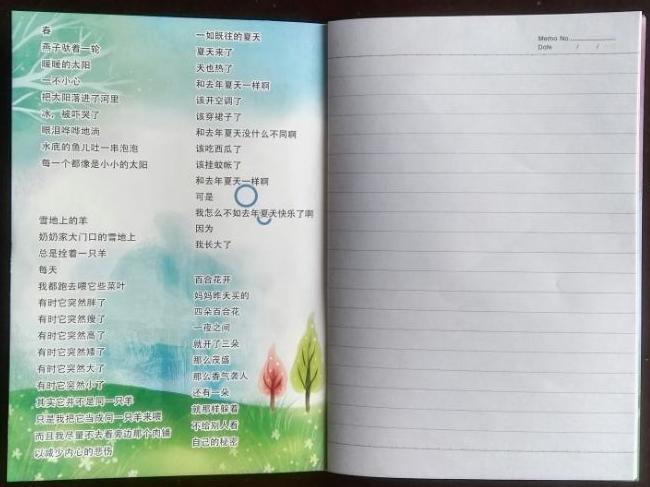 春
燕子驮着一轮
暖暖的太阳
一不小心
把太阳落进了河里
冰，被吓哭了
眼泪哗哗地淌
水底的鱼儿吐一串泡泡
每一个都像是小小的太阳
雪地上的羊
奶奶家大门口的雪地上
总是拴着一只羊
每天
我都跑去喂它些菜叶
有时它突然胖了
有时它突然瘦了
有时它突然高了
有时它突然矮了
有时它突然大了
有时它突然小了
其实它并不是同一只羊
只是我把它当成同一只羊来喂
而且我尽量不去看旁边那个肉铺
以减少内心的悲伤
一如既往的夏天
夏天来了
天也热了
和去年夏天一样啊
该开空调了
该穿裙子了
和去年夏天没什么不同啊
该吃西瓜了
该挂蚊帐了
和去年夏天一样啊
可是
我怎么不如去年夏天快乐了啊
因为
我长大了
百合花开
妈妈昨天买的
四朵百合花
一夜之间
就开了三朵
那么茂盛
那么香气袭人
还有一朵
就那样躲着
不给别人看
自己的秘密
Memo No.
Date / /